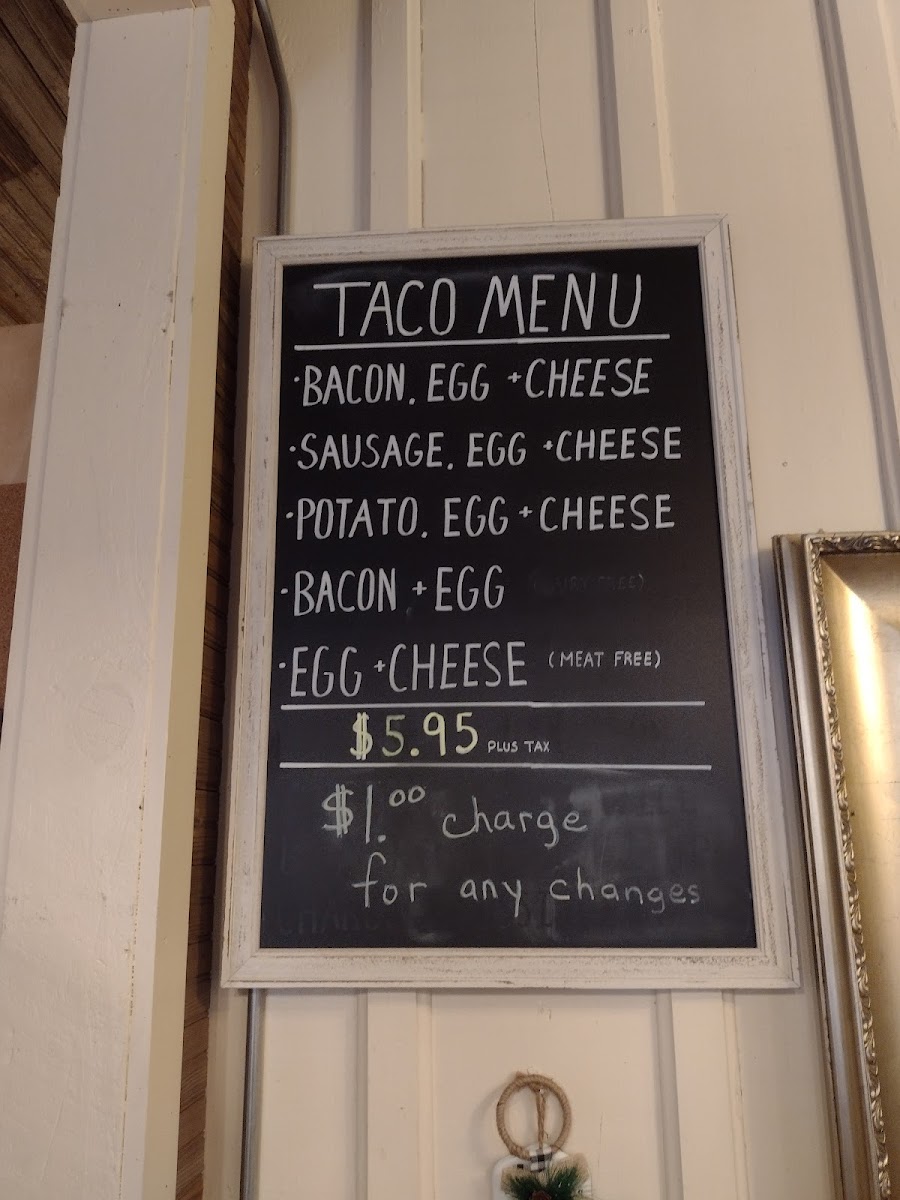 TACO MENU
·BACON, EGG + CHEESE
·SAUSAGE, EGG + CHEESE
·POTATO, EGG + CHEESE
·BACON + EGG (DAIRY FREE)
·EGG + CHEESE (MEAT FREE)
$5.95 PLUS TAX
$1.00 charge
for any changes